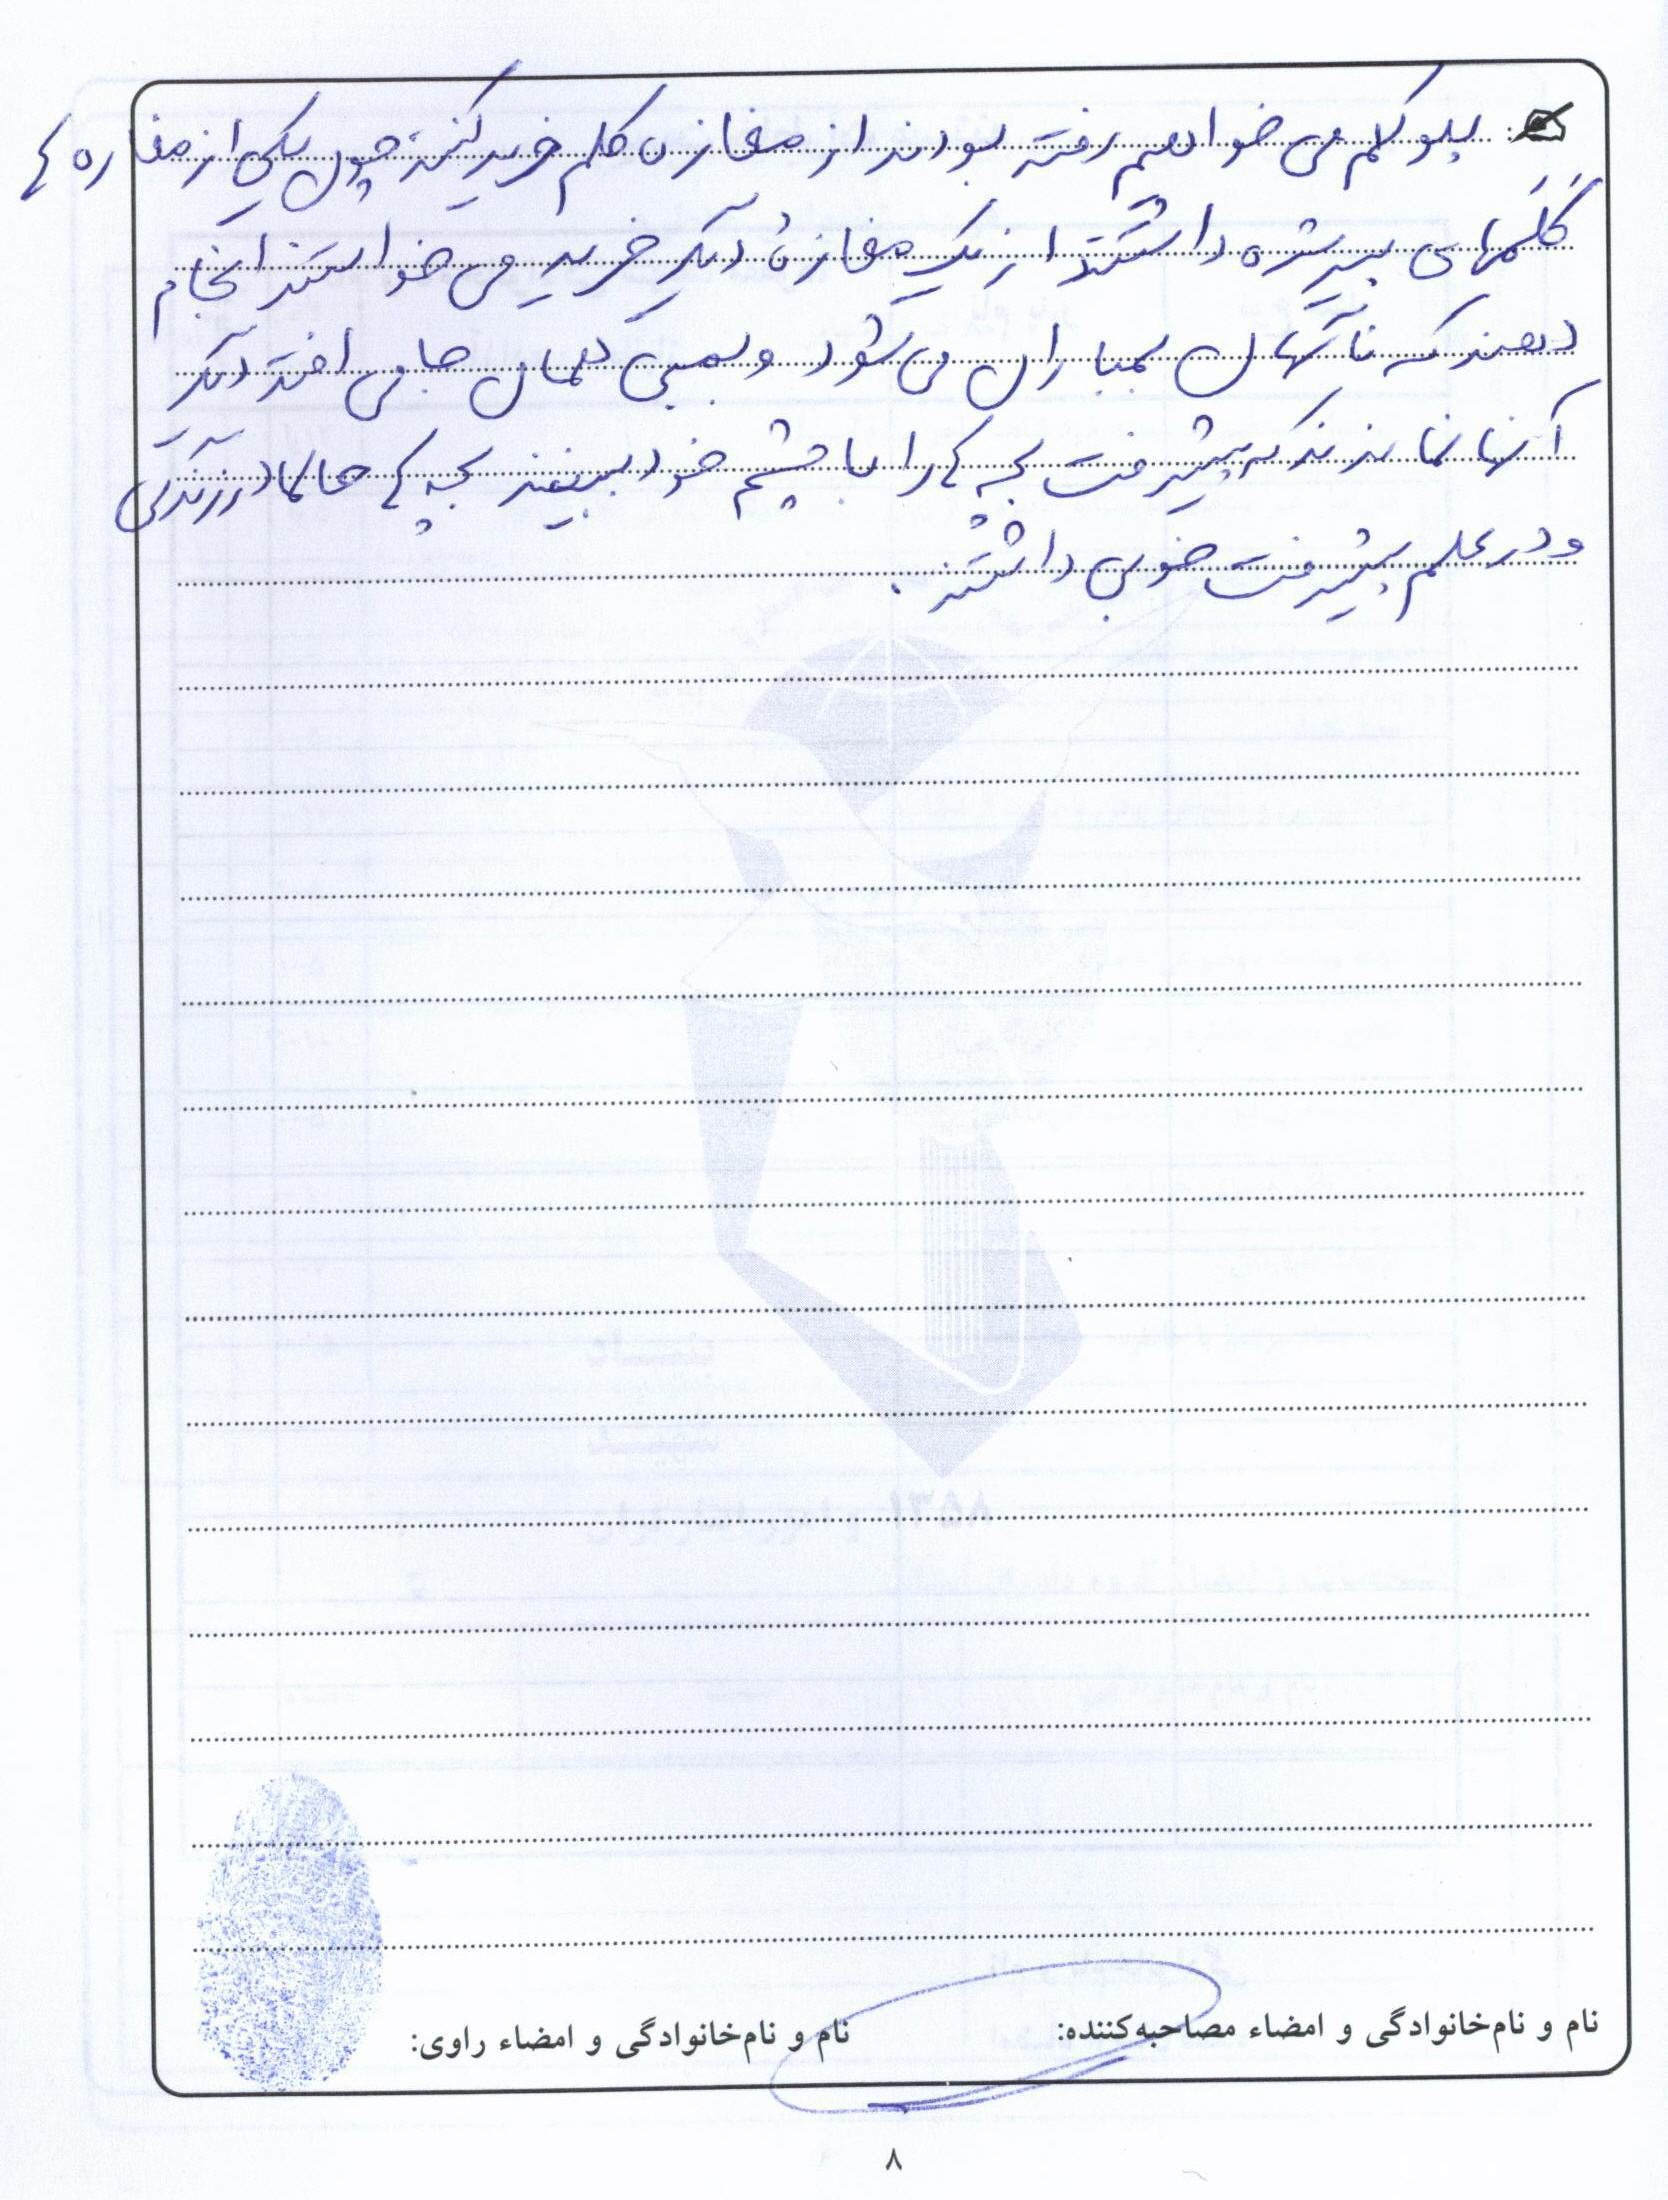 پلو کلم می خواهیم رفته بودند از مغازه کلم خرید کنند چون یکی از مغازه ها
کلمهای پیر شده داشتند از یک مغازهٔ دیگر خرید می خواستند انجام
دهند که ناگهان بمباران می شود و بمبی همان جا می افتد دیگر
آنها نماندند که پیشرفت بچه ها را با چشم خود ببینند بچه ها حالا در زندگی
و در علم پیشرفت خوبی داشتند.
نام و نام‌خانوادگی و امضاء مصاحبه‌کننده:
نام و نام‌خانوادگی و امضاء راوی:
۸